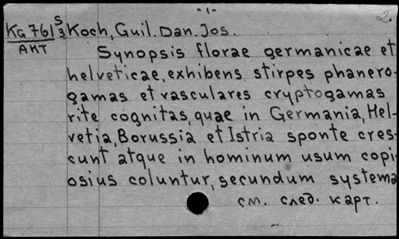 -1-
2.
Kg 761 S/3 Koch, Guil. Dan. Jos.
АНТ
Synopsis florae germanicae et
helveticae, exhibens stirpes phanero-
gamas et vasculares cryptogamas
rite cognitas, quae in Germania, Hel-
vetia, Borussia et Istria sponte cres-
cunt atque in hominum usum copi-
osius coluntur, secundum systema
см. след. карт.